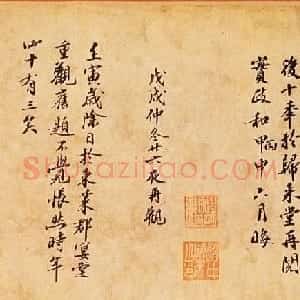 後十年於歸来堂再閱
實政和丙申六月晦
戊戌仲冬廿六夜再觀
壬寅歲除日於東萊郡宴堂
重觀舊題不覺悵然時年
四十有三矣